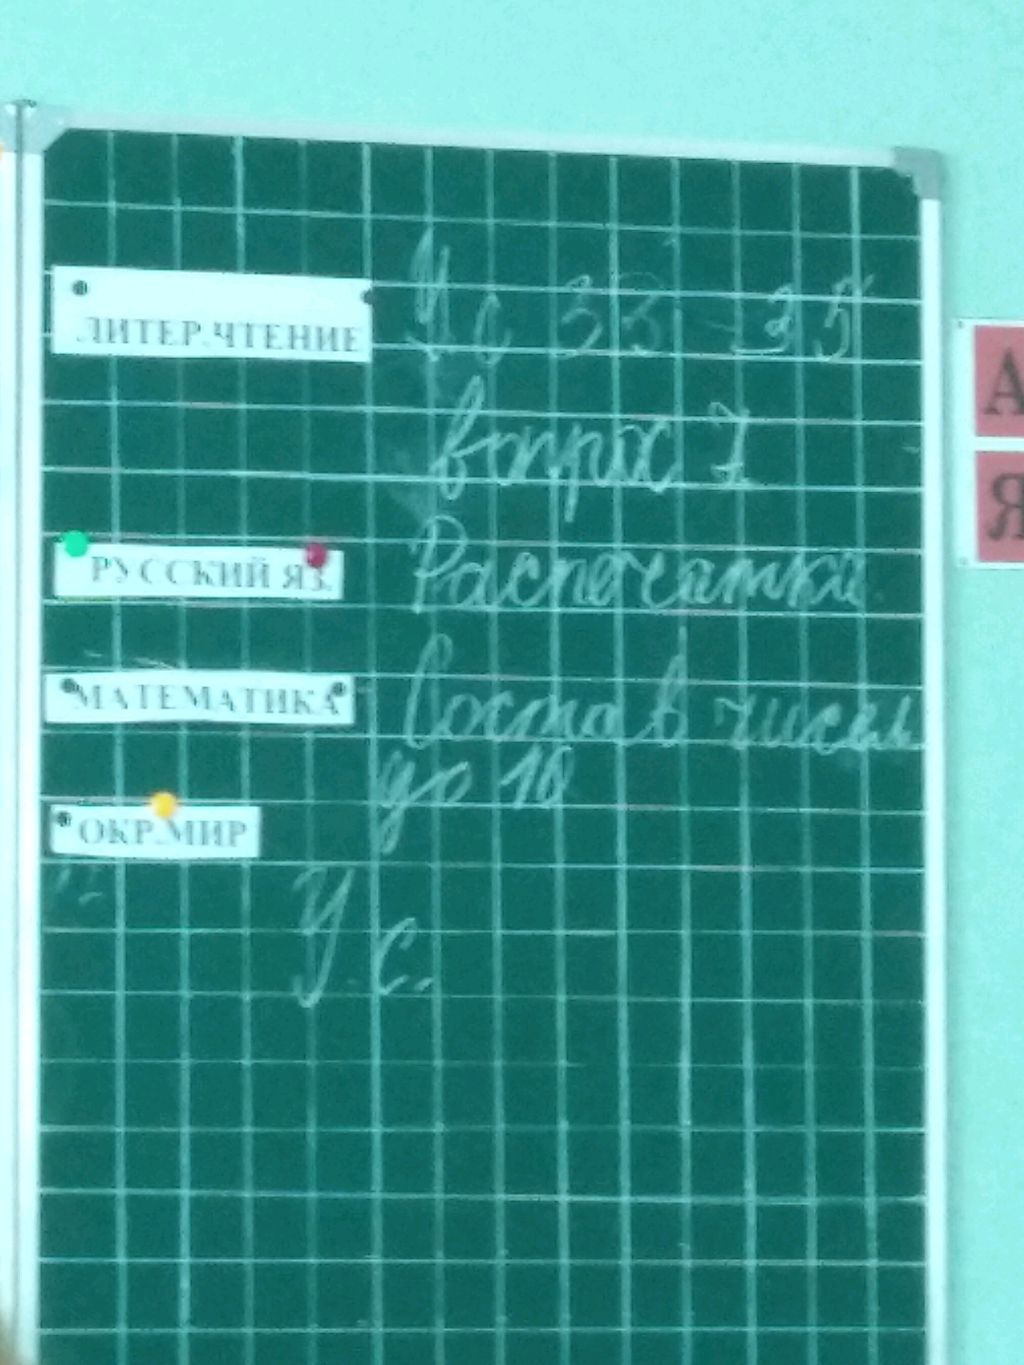 ЛИТЕР.ЧТЕНИЕ Ч с 33 - 35
вопрос 7
РУССКИЙ ЯЗ. Распечатка
МАТЕМАТИКА Состав чисел
до 10
ОКР.МИР
У. с.
А
Я